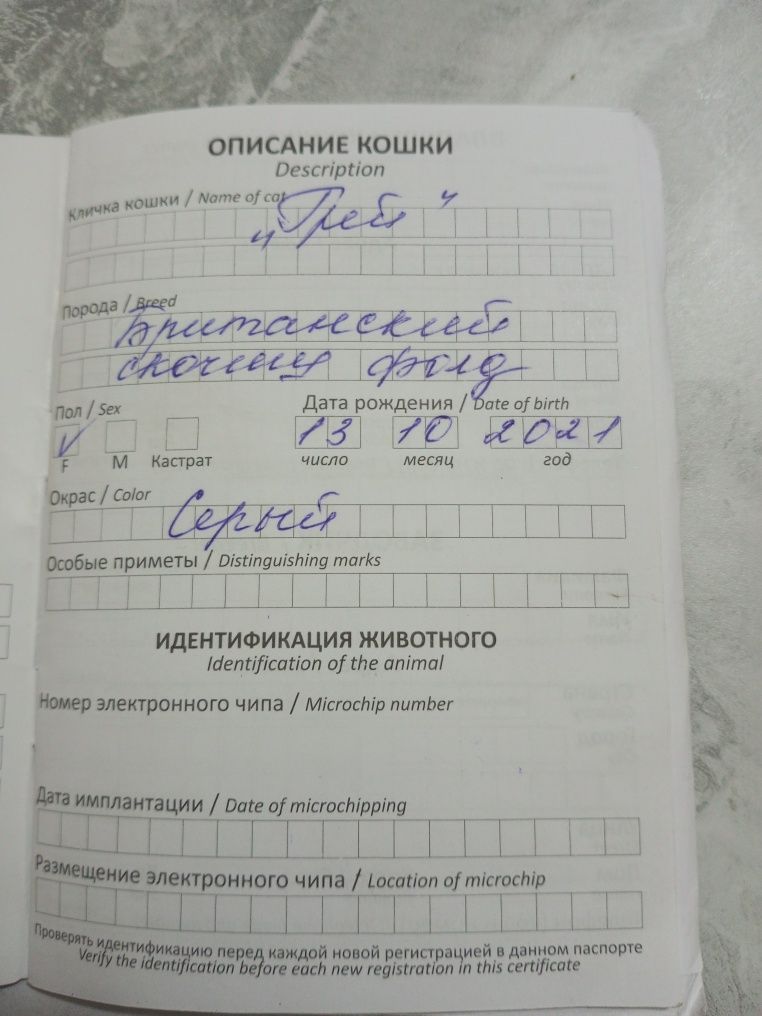 ОПИСАНИЕ КОШКИ
Description
Кличка кошки / Name of cat
„Грей"
Порода / Breed
Британский
скочиш фолд
Пол / Sex
Дата рождения / Date of birth
V 13 10 2021
F M Кастрат число месяц год
Окрас / Color
Серый
Особые приметы / Distinguishing marks
ИДЕНТИФИКАЦИЯ ЖИВОТНОГО
Identification of the animal
Номер электронного чипа / Microchip number
Дата имплантации / Date of microchipping
Размещение электронного чипа / Location of microchip
Проверять идентификацию перед каждой новой регистрацией в данном паспорте
Verify the identification before each new registration in this certificate